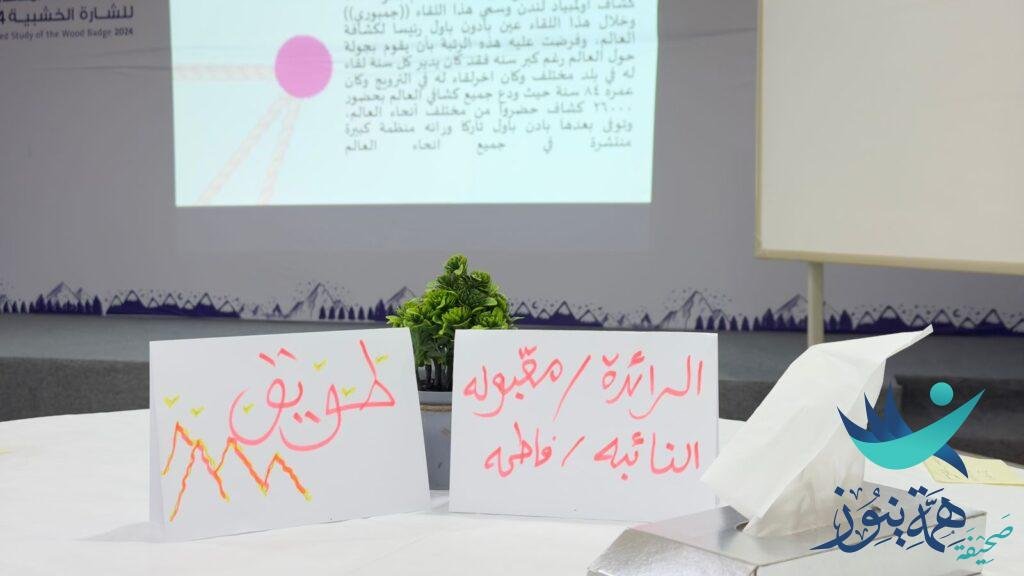 للشارة الخشبية 4
ed Study of the Wood Badge 2024
كشاف اولمبياد لندن وسمي هذا اللقاء ((جمبوري))
وخلال هذا اللقاء عين بادون باول رئيسا لكشافة
العالم، وفرضت عليه هذه الرتبة بأن يقوم بجولة
حول العالم رغم كبر سنه فقد كان يدير كل سنة لقاء
له في بلد مختلف وكان اخرلقاء له في النرويج وكان
عمره ٨٤ سنة حيث ودع جميع كشافي العالم بحضور
٢٦٠٠٠ كشاف حضروا من مختلف أنحاء العالم.
وتوفى بعدها بادن باول تاركا ورائه منظمة كبيرة
منتشرة في جميع انحاء العالم
طويق
الرائدة / مقبوله
النائبه / فاطمه
صحيفة
همة نيوز